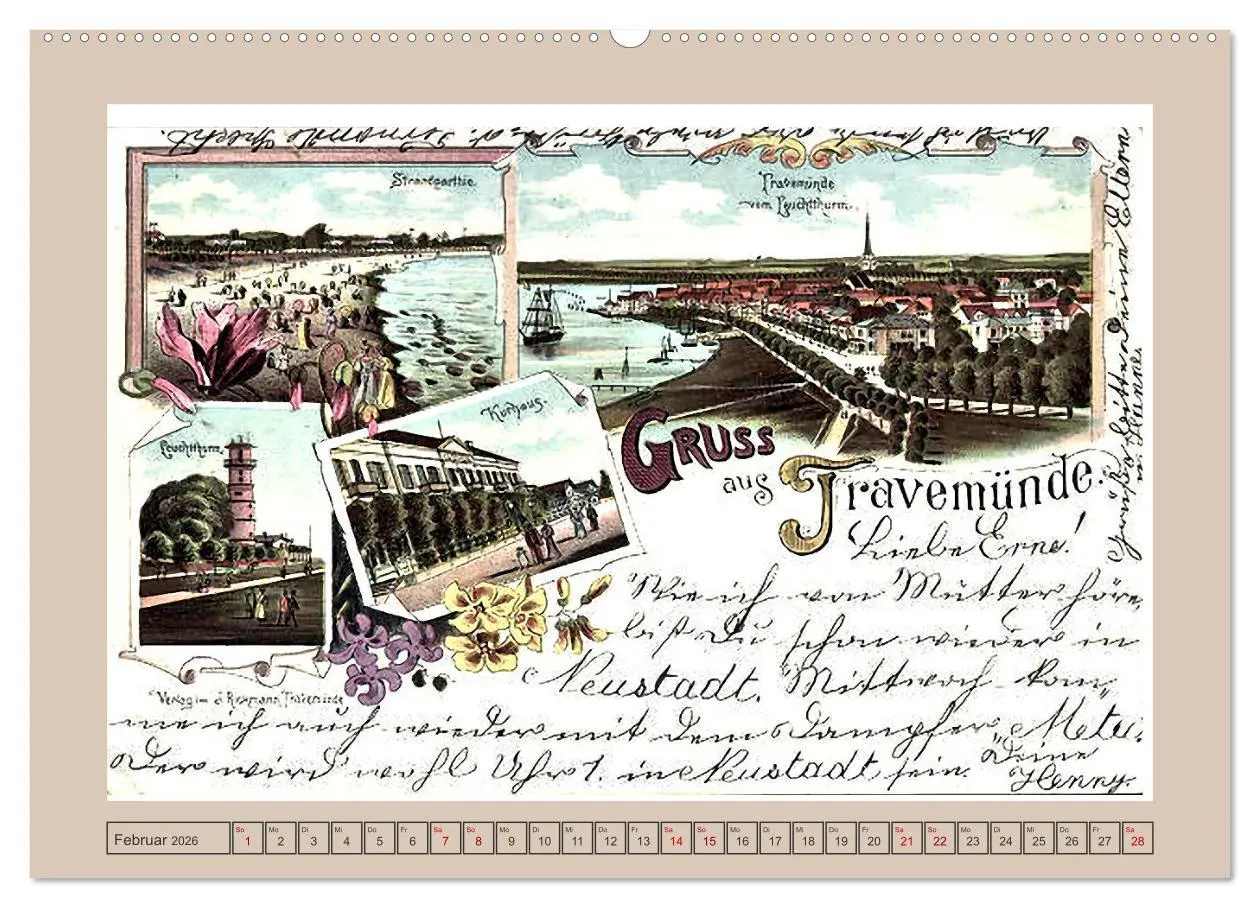 Strandparthie.
Travemünde
vom Leuchtthurm.
Leuchtthurm.
Kurhaus.
GRUSS
aus Travemünde.
Liebe Erna!
Wie ich von Mutter höre,
bist Du schon wieder in
Neustadt. Mittwoch kom„
me ich auch wieder mit dem Dampfer „Meta.
Der wird wohl Uhr 1. in Neustadt sein. Deine
Henny.
Grüße bitte Deine Eltern
Verlag Travemünde
Februar 2026
So Mo Di Mi Do Fr Sa So Mo Di Mi Do Fr Sa So Mo Di Mi Do Fr Sa So Mo Di Mi Do Fr Sa
1 2 3 4 5 6 7 8 9 10 11 12 13 14 15 16 17 18 19 20 21 22 23 24 25 26 27 28